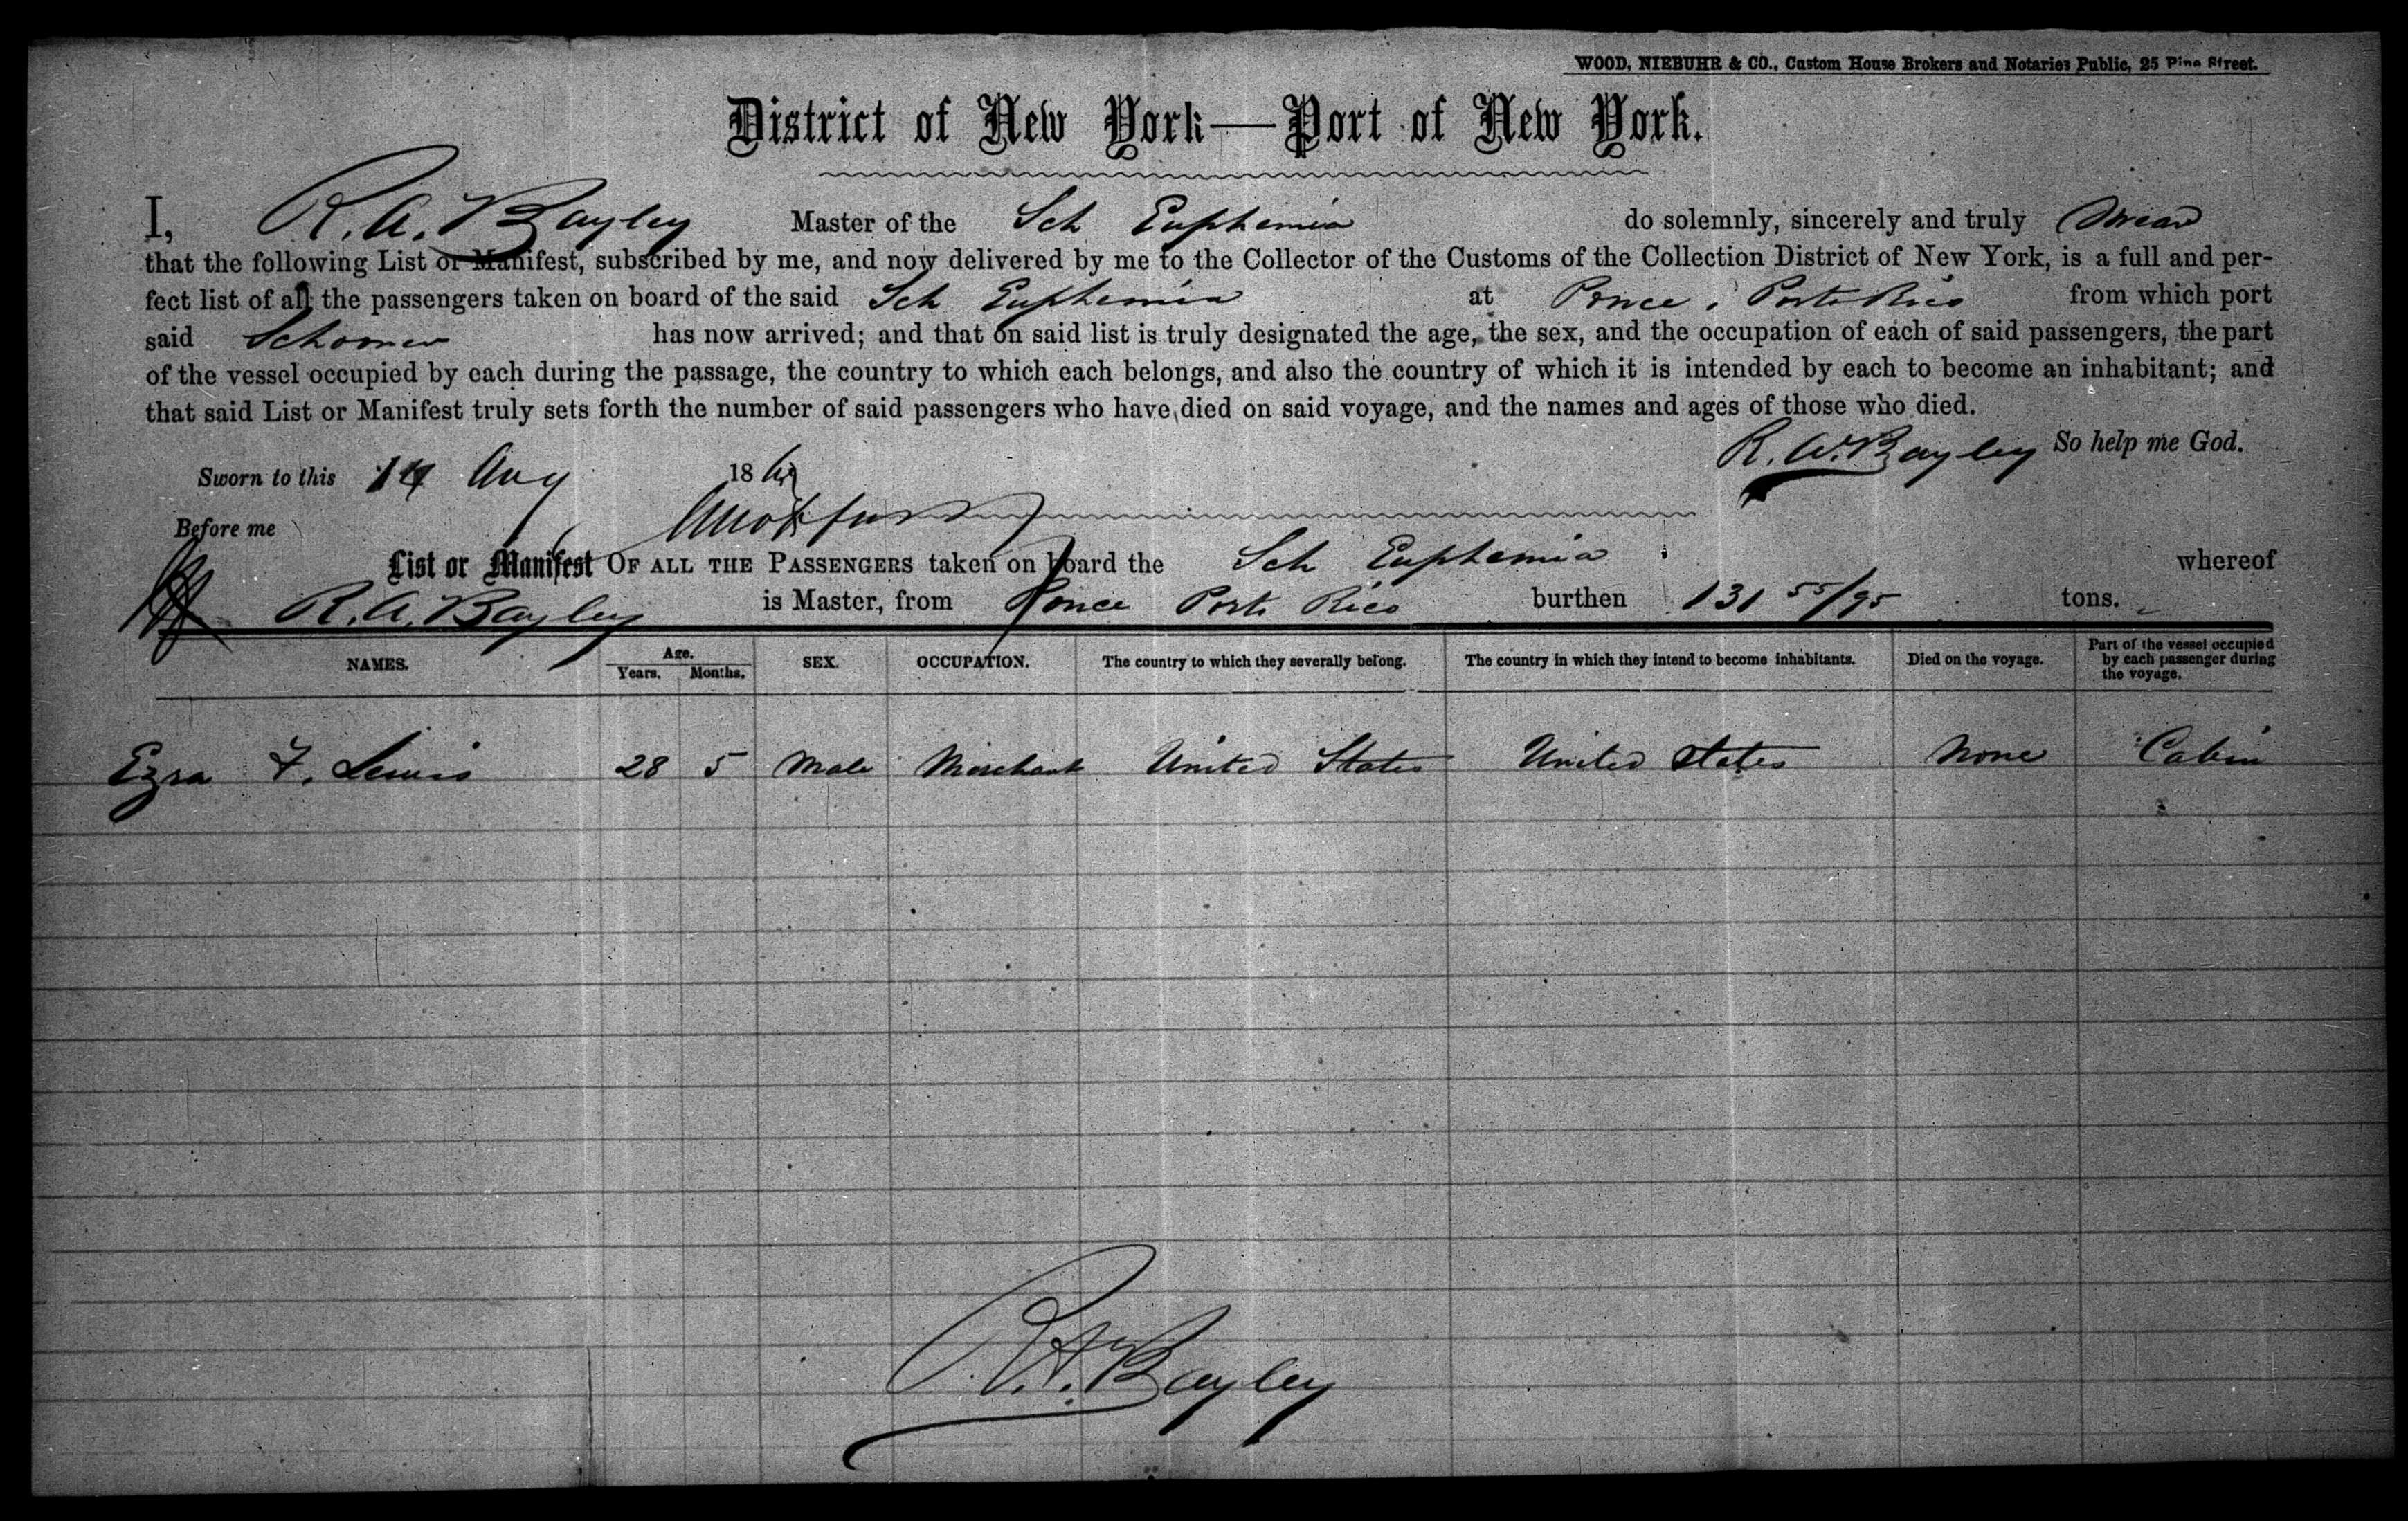 WOOD, NIEBUHR & CO., Custom House Brokers and Notaries Public, 25 Pine Street.
District of New York—Port of New York.
I, R. A. Bayley Master of the Sch Euphemia do solemnly, sincerely and truly Swear
that the following List or Manifest, subscribed by me, and now delivered by me to the Collector of the Customs of the Collection District of New York, is a full and per-
fect list of all the passengers taken on board of the said Sch Euphemia at Ponce, Porto Rico from which port
said Schooner has now arrived; and that on said list is truly designated the age, the sex, and the occupation of each of said passengers, the part
of the vessel occupied by each during the passage, the country to which each belongs, and also the country of which it is intended by each to become an inhabitant; and
that said List or Manifest truly sets forth the number of said passengers who have died on said voyage, and the names and ages of those who died.
R. A. Bayley So help me God.
Sworn to this 14 Aug 186
Before me
List or Manifest OF ALL THE PASSENGERS taken on board the Sch Euphemia whereof
R. A. Bayley is Master, from Ponce Porto Rico burthen 131 55/95 tons.
NAMES. Age. Years. Months. SEX. OCCUPATION. The country to which they severally belong. The country in which they intend to become inhabitants. Died on the voyage. Part of the vessel occupied by each passenger during the voyage.
Ezra F. Lewis 28 5 Male Merchant United States United States None Cabin
R. A. Bayley